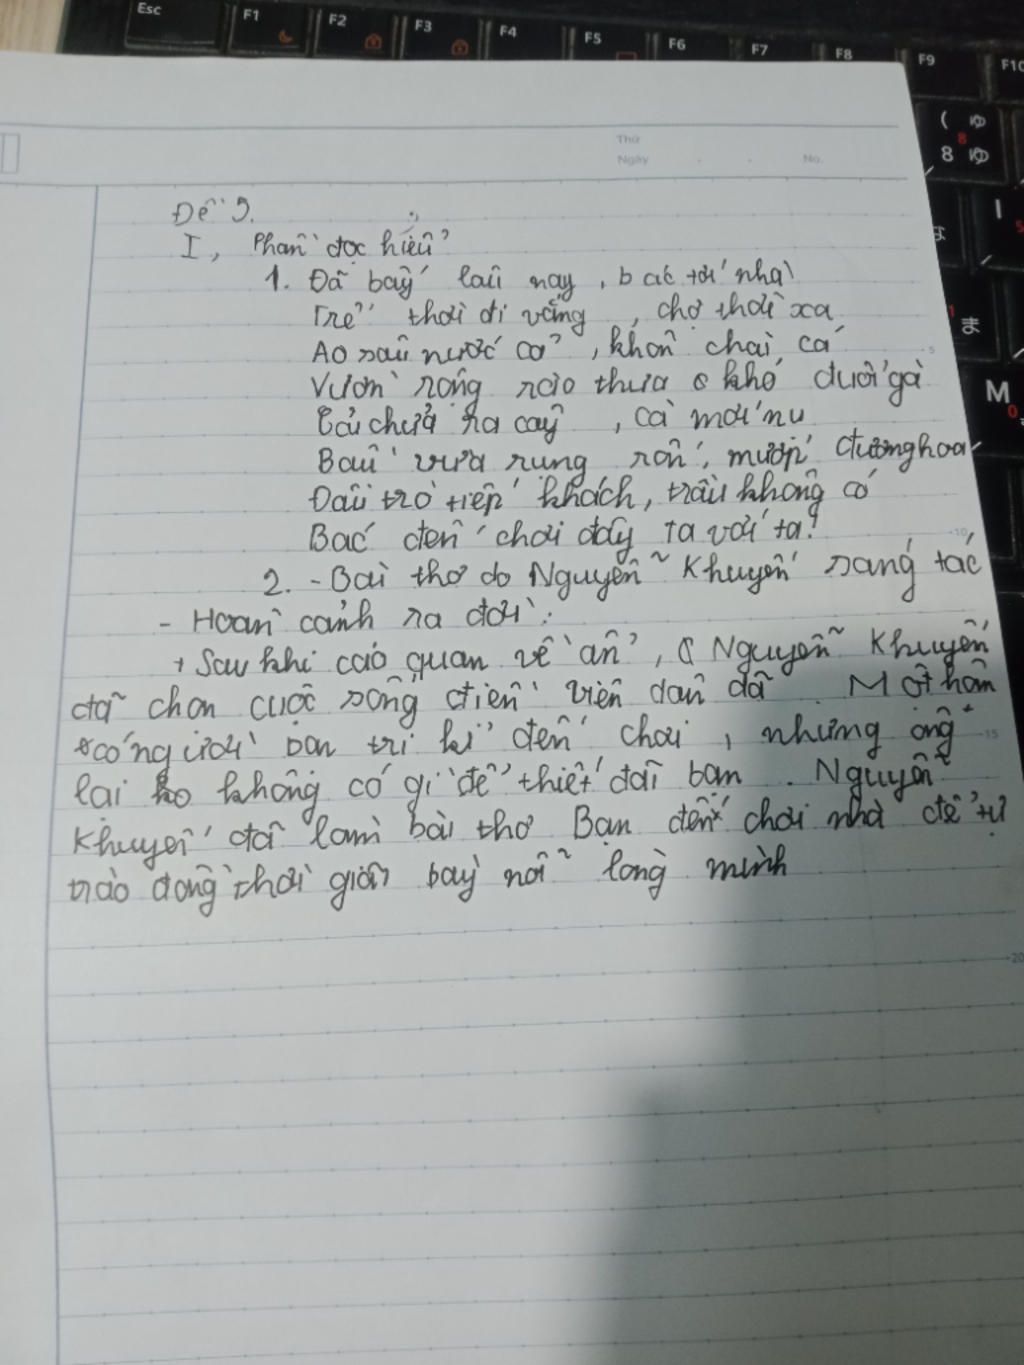 Esc F1 F2 F3 F4 F5 F6 F7 F8 F9 F10
( ゆ
8 8 ゆ
Thứ
Ngày No.
Đề 9.
I, Phần đọc hiểu
1. Đã bấy lâu nay, bác tới nhà
Trẻ thời đi vắng, chợ thời xa
Ao sâu nước cả, khôn chài cá
Vườn rộng rào thưa khó đuổi gà
Cải chửa ra cây, cà mới nụ
Bầu vừa rụng rốn, mướp đương hoa
Đầu trò tiếp khách, trầu không có
Bác đến chơi đây ta với ta!
2. - Bài thơ do Nguyễn Khuyến sáng tác
- Hoàn cảnh ra đời:
+ Sau khi cáo quan về ẩn, Nguyễn Khuyến
đã chọn cuộc sống điền viên dân dã. Một hôm
có người bạn tri kỉ đến chơi, nhưng ông
lại không có gì để thiết đãi bạn. Nguyễn
Khuyến đã làm bài thơ Bạn đến chơi nhà để tự
trào đồng thời giãi bày nỗi lòng mình
I
ま
M
5
10
15
20